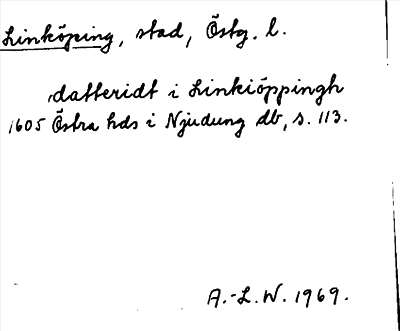 Linköping, stad, Östg. l.
datteridt i Linkiöppingh
1605 Östra hds i Njudung db, s. 113.
A.-L. W. 1969.